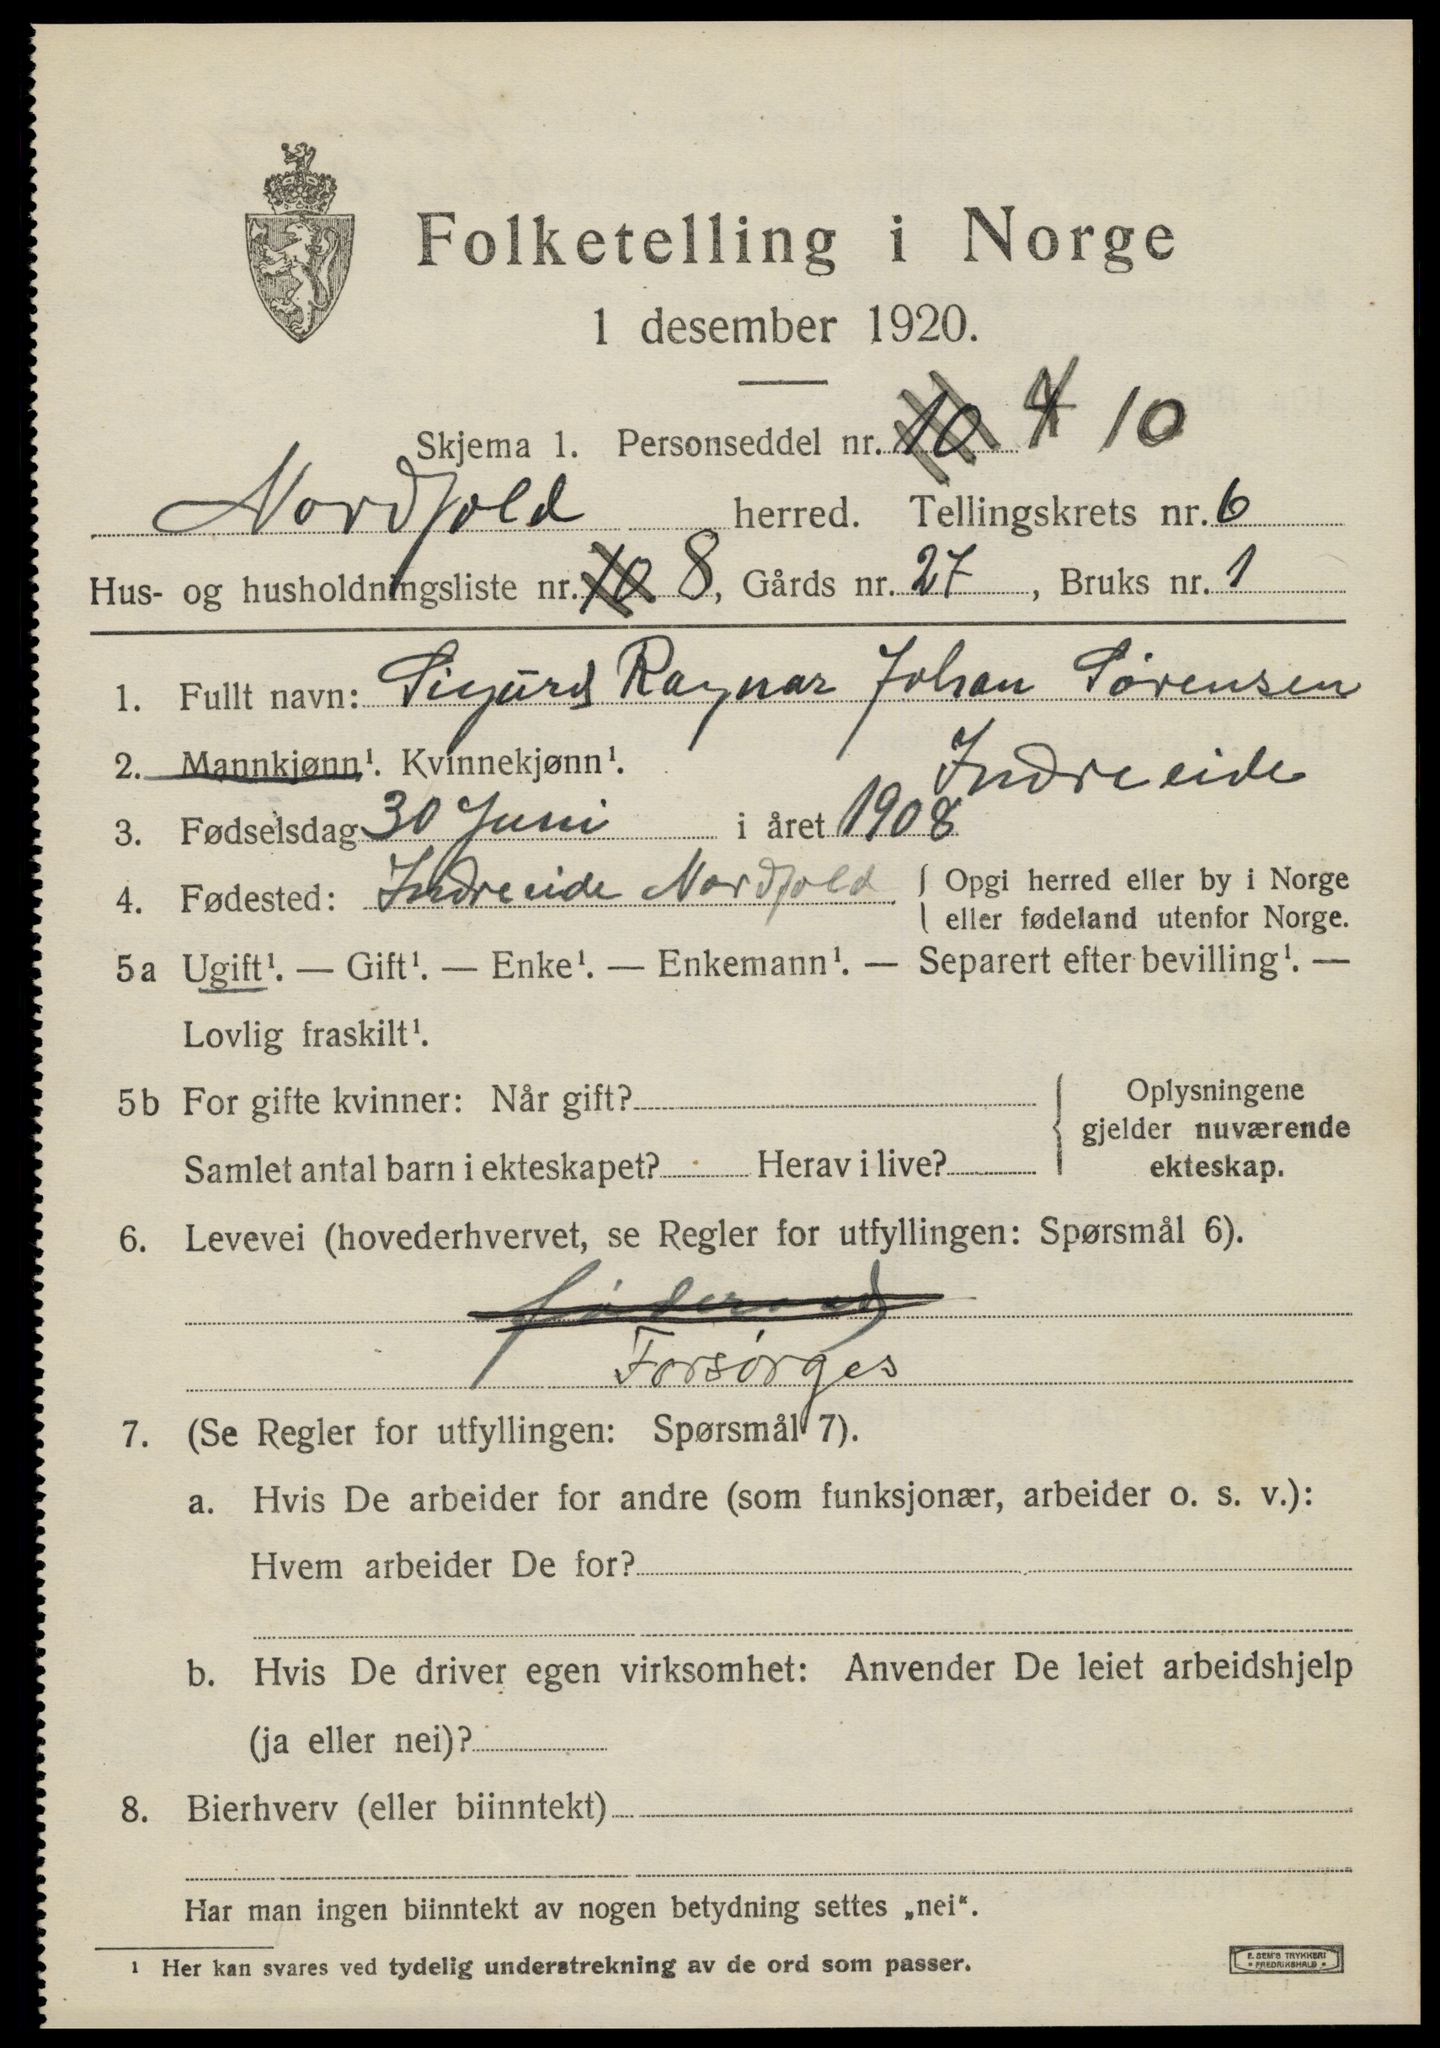 Folketelling i Norge
1 desember 1920.
Skjema 1. Personseddel nr. 10 4 10
Nordfold herred. Tellingskrets nr. 6
Hus- og husholdningsliste nr. 10 8, Gårds nr. 27, Bruks nr. 1
1. Fullt navn: Sigurd Ragnar Johan Sørensen
2. Mannkjønn¹. Kvinnekjønn¹. Indreeide
3. Fødselsdag 30 Juni i året 1908
4. Fødested: Indreeide Nordfold { Opgi herred eller by i Norge
eller fødeland utenfor Norge.
5a Ugift¹. — Gift¹. — Enke¹. — Enkemann¹. — Separert efter bevilling¹. —
Lovlig fraskilt¹.
5b For gifte kvinner: Når gift?
Samlet antal barn i ekteskapet? Herav i live?
Oplysningene
gjelder nuværende
ekteskap.
6. Levevei (hovederhvervet, se Regler for utfyllingen: Spørsmål 6).
Forsørges
7. (Se Regler for utfyllingen: Spørsmål 7).
a. Hvis De arbeider for andre (som funksjonær, arbeider o. s. v.):
Hvem arbeider De for?
b. Hvis De driver egen virksomhet: Anvender De leiet arbeidshjelp
(ja eller nei)?
8. Bierhverv (eller biinntekt)
Har man ingen biinntekt av nogen betydning settes „nei“.
¹ Her kan svares ved tydelig understrekning av de ord som passer.
E. SEM'S TRYKKERI
FREDRIKSHALD